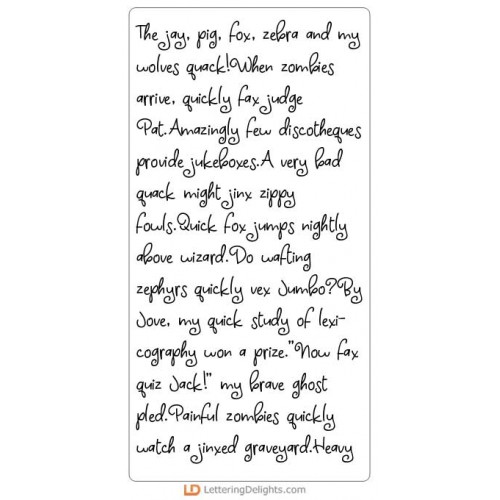 The jay, pig, fox, zebra and my
wolves quack!When zombies
arrive, quickly fax judge
Pat.Amazingly few discotheques
provide jukeboxes.A very bad
quack might jinx zippy
fowls.Quick fox jumps nightly
above wizard.Do wafting
zephyrs quickly vex Jumbo?By
Jove, my quick study of lexi-
cography won a prize."Now fax
quiz Jack!" my brave ghost
pled.Painful zombies quickly
watch a jinxed graveyard.Heavy
LD LetteringDelights.com